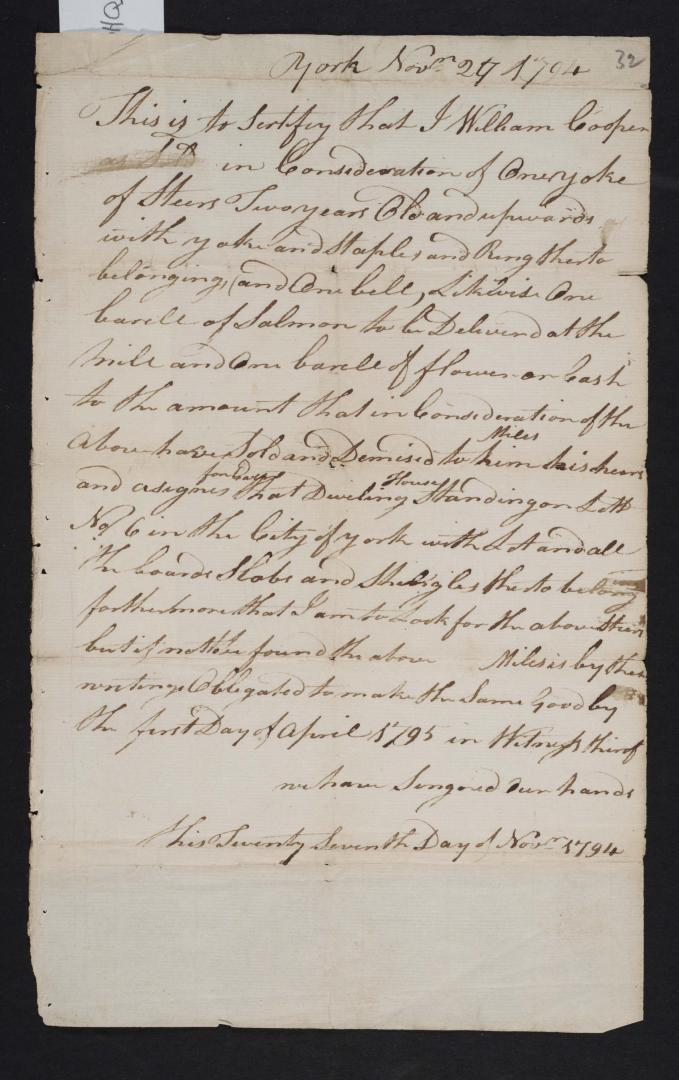 HQ
32
York Novr 27 1794
This is to Sertify that I William Cooper
in Consideration of One yoke
of Steers Two years Old and upwards
with yoke and Staples and Ring therto
belonging, (and One bell, Likwise One
barell of Salmon to be Deliverd at the
mile and One barell of flower or Cash
to the amount that in Consideration of the
Miles
above have Sold and Demised to him his heirs
for Ever House
and asignes that Dweling Standing on Lott
No 6 in the City of york with Lot and all
the boards Slabs and Shingles therto belong
forthermore that I am to Look for the above Steers
but if not to be found the above Miles is by these
writings Obligated to make the Same Good by
the first Day of April 1795 in Witness therof
we have Singned Our hands
this Twenty Seventh Day of Novr 1794